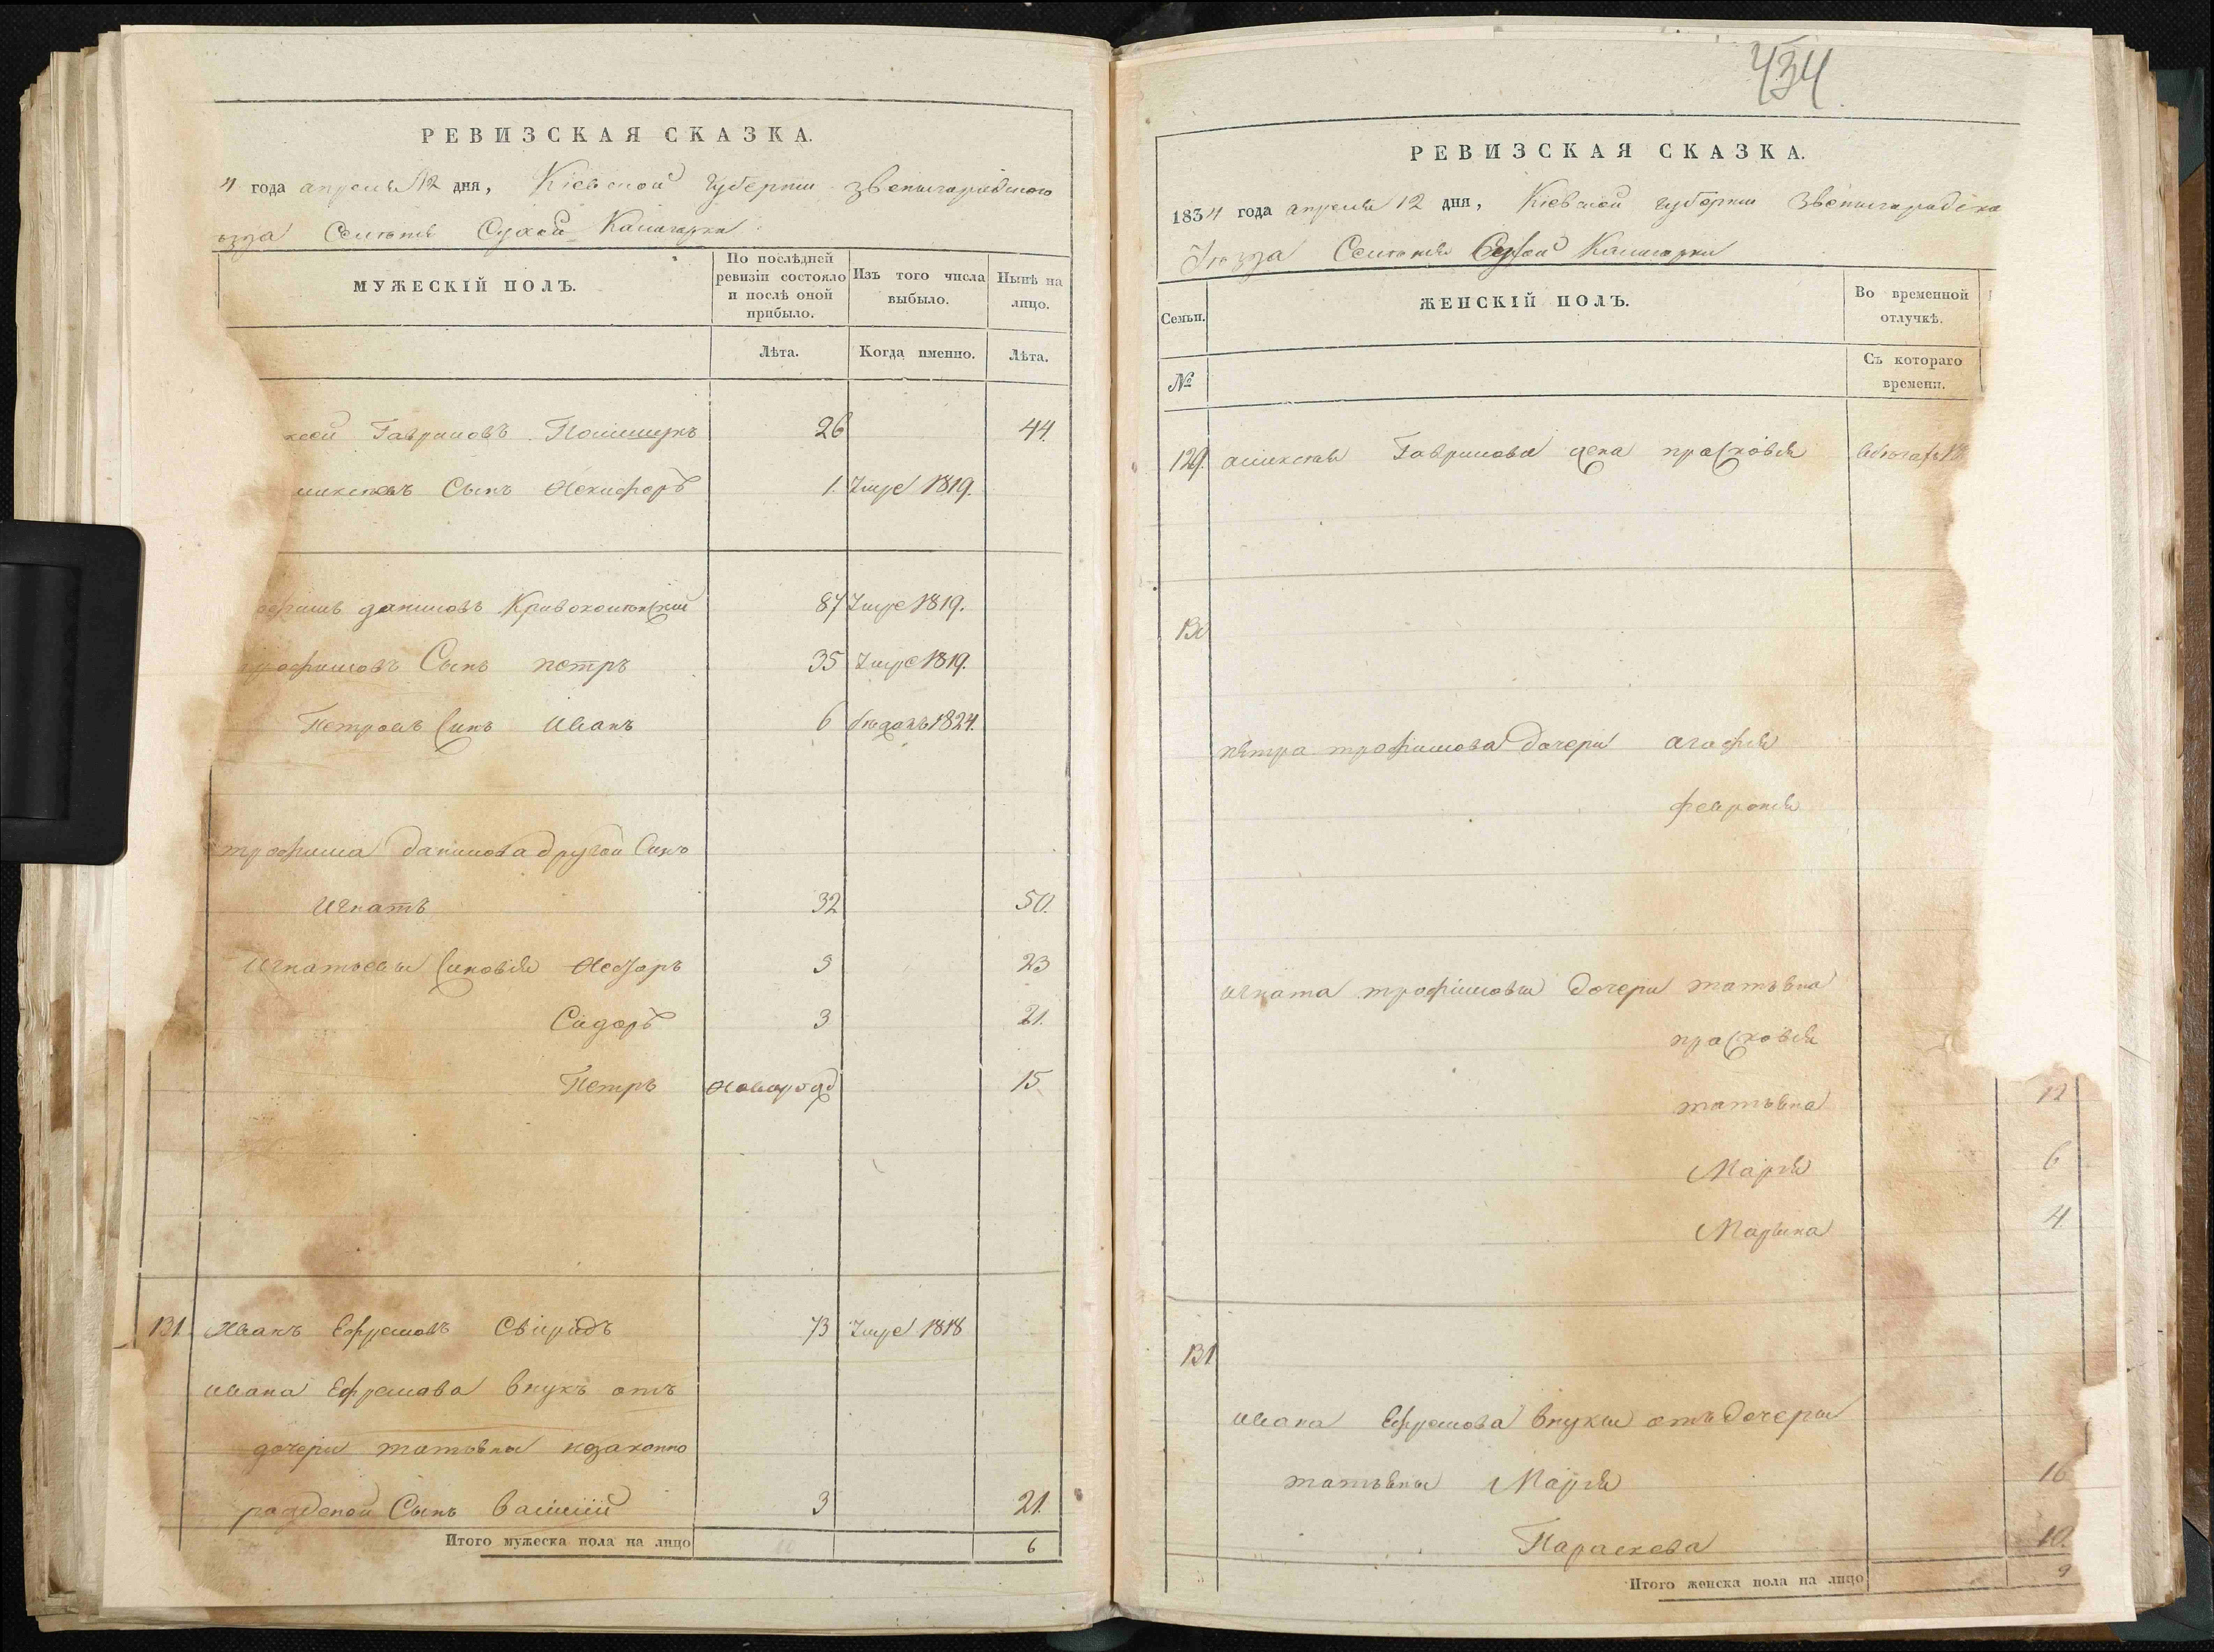 434
РЕВИЗСКАЯ СКАЗКА.
4 года апреля 12 дня, Кіевской Губерніи Звенигородского
ѣзда Селенія Сухой Калигорки
МУЖЕСКІЙ ПОЛЪ.
По послѣдней ревизіи состояло и послѣ оной прибыло.
Изъ того числа выбыло.
Нынѣ на лицо.
Лѣта.
Когда именно.
Лѣта.
ксей Гавриловъ Полищукъ 26 44.
лексеевъ Сынъ Некифоръ 1. Умре 1819.
офимъ даниловъ 87 Умре 1819.
трофимовъ Сынъ петръ 35 Умре 1819.
Петровъ Синъ Иванъ 6 бѣжалъ 1824.
трофима данилова другой Синъ
Игнатъ 32 50.
Игнатьевы Синовія Назаръ 23
Сидоръ 3 21.
Петръ Новорожд 15
131. Иванъ Ефремовъ Свиридъ 73 Умре 1818
ивана Ефремова внукъ отъ
дочери татьяны незаконно
рожденой Сынъ Василий 3 21.
Итого мужеска пола на лицо 6
РЕВИЗСКАЯ СКАЗКА.
1834 года апреля 12 дня, Кіевской губерніи Звенигородска
Уѣзда Селенія Сухой Калигорки
Семьи.
ЖЕНСКІЙ ПОЛЪ.
Во временной отлучкѣ.
№
Съ котораго времени.
129. алексея Гаврилова жена прасковія
130
петра трофимова дочери агафія
феЄронія
игната трофимова дочери татьяна
прасковія
татьяна 12
Марія 6
Марьяна 4.
131
ивана Ефремова внуки отъ дочери
татьяны Марія 16
Параскева 10.
Итого женска пола на лицо 9